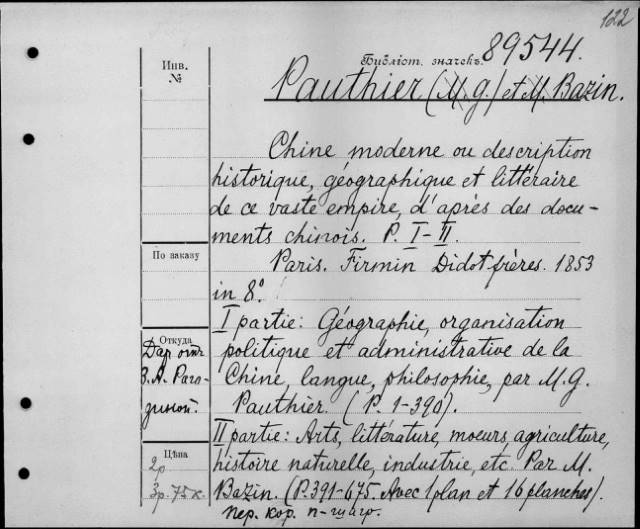 122
Библіот. значекъ 89544.
Инв.
№
Pauthier (M. g.) et M. Bazin.
Chine moderne ou description
historique, géographique et littéraire
de ce vaste empire, d'après des docu-
ments chinois. P. I-II.
По заказу
Paris. Firmin Didot frères. 1853
in 8°.
I partie: Géographie, organisation
Откуда
politique et administrative de la
Даръ отъ
Chine, langue, philosophie, par M. G.
З. А. Раго-
Pauthier. (P. 1-390).
зиной.
II partie: Arts, littérature, moeurs, agriculture,
Цѣна
histoire naturelle, industrie, etc. Par M.
2р
Bazin. (P. 391-675. Avec 1 plan et 16 planches).
3р. 75к.
пер. кор. п-шагр.